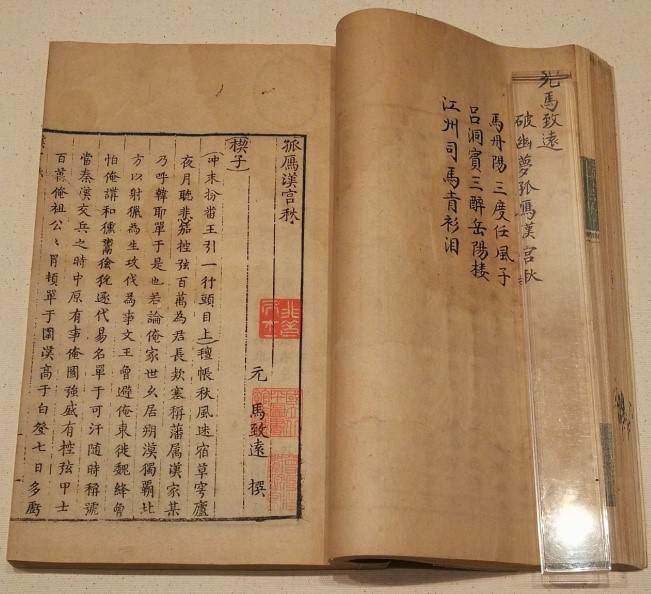 元馬致遠
破幽夢孤鴈漢宮秋
馬丹陽三度任風子
呂洞賓三醉岳陽樓
江州司馬青衫泪
孤鴈漢宮秋
元 馬致遠 撰
(楔子)
(冲末扮番王引一行頭目上)氊帳秋風迷宿草穹廬
夜月聽悲笳控弦百萬為君長欵塞稱藩属漢家某
乃呼韓耶單于是也若論俺家世久居朔漠獨霸北
方以射獵為生攻伐為事文王曾避俺東徙魏絳曾
怕俺講和獯鬻獫狁逐代易名單于可汗随時稱號
當秦漢交兵之時中原有事俺國強盛有控弦甲士
百萬俺祖公〻冒頓單于圍漢高于白登七日多虧